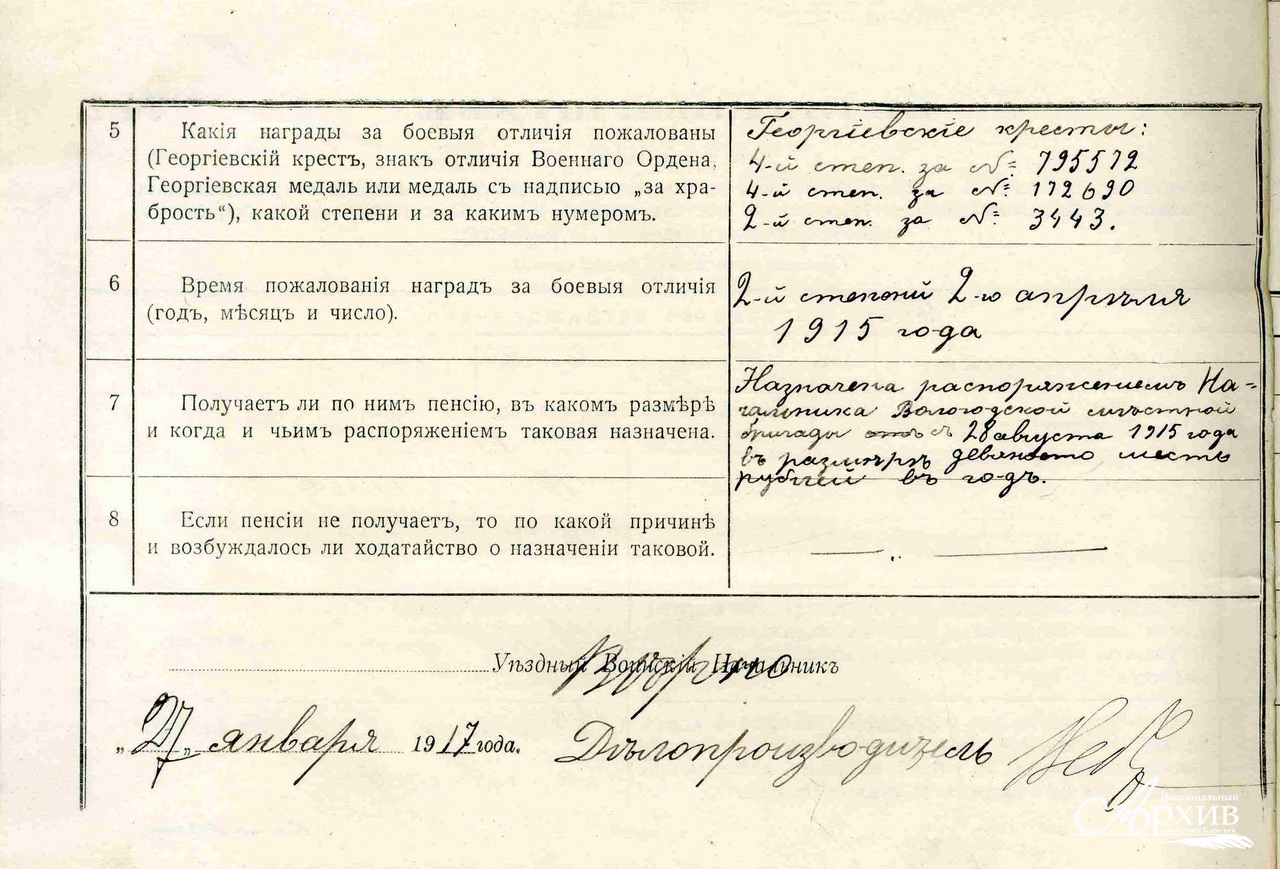 5
Какія награды за боевыя отличія пожалованы
(Георгіевскій крестъ, знакъ отличія Военнаго Ордена,
Георгіевская медаль или медаль съ надписью „за хра-
брость“), какой степени и за какимъ нумеромъ.
Георгіевскіе кресты:
4-й степ. за №: 795572
4-й степ. за №: 172690
2-й степ. за №: 3443.
6
Время пожалованія наградъ за боевыя отличія
(годъ, мѣсяцъ и число).
2-й степени 2-го апрѣля
1915 года
7
Получаетъ ли по нимъ пенсію, въ какомъ размѣрѣ
и когда и чьимъ распоряженіемъ таковая назначена.
Назначена распоряженіемъ На-
чальника Вологодской мѣстной
бригады съ 28 августа 1915 года
въ размѣрѣ девяносто шесть
рублей въ годъ.
8
Если пенсіи не получаетъ, то по какой причинѣ
и возбуждалось ли ходатайство о назначеніи таковой.
Уѣздный Воинскій Начальникъ
„27„ января 1917 года.
Дѣлопроизводитель
Национальный
Архив
Республики Карелия